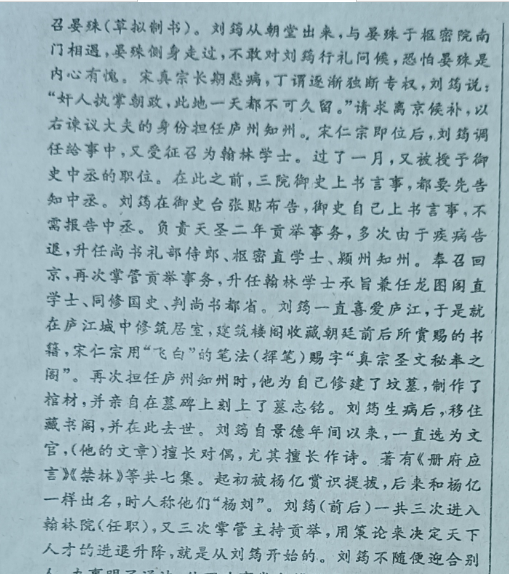 召晏殊(草拟制书)。刘筠从朝堂出来,与晏殊于枢密院南
门相遇,晏殊侧身走过,不敢对刘筠行礼问候,恐怕晏殊是
内心有愧。宋真宗长期患病,丁谓逐渐独断专权,刘筠说:
“奸人执掌朝政,此地一天都不可久留。”请求离京候补,以
右谏议大夫的身份担任庐州知州。宋仁宗即位后,刘筠调
任给事中,又受征召为翰林学士。过了一月,又被授予御
史中丞的职位。在此之前,三院御史上书言事,都要先告
知中丞。刘筠在御史台张贴布告,御史自己上书言事,不
需报告中丞。负责天圣二年贡举事务,多次由于疾病告
退,升任尚书礼部侍郎、枢密直学士、颍州知州。奉召回
京,再次掌管贡举事务,升任翰林学士承旨兼任龙图阁直
学士、同修国史、判尚书都省。刘筠一直喜爱庐江,于是就
在庐江城中修筑居室,建筑楼阁收藏朝廷前后所赏赐的书
籍,宋仁宗用“飞白”的笔法(挥笔)赐字“真宗圣文秘奉之
阁”。再次担任庐州知州时,他为自己修建了坟墓,制作了
棺材,并亲自在墓碑上刻上了墓志铭。刘筠生病后,移住
藏书阁,并在此去世。刘筠自景德年间以来,一直选为文
官,(他的文章)擅长对偶,尤其擅长作诗。著有《册府应
言》《禁林》等共七集。起初被杨亿赏识提拔,后来和杨亿
一样出名,时人称他们“杨刘”。刘筠(前后)一共三次进入
翰林院(任职),又三次掌管主持贡举,用策论来决定天下
人才的进退升降,就是从刘筠开始的。刘筠不随便迎合别